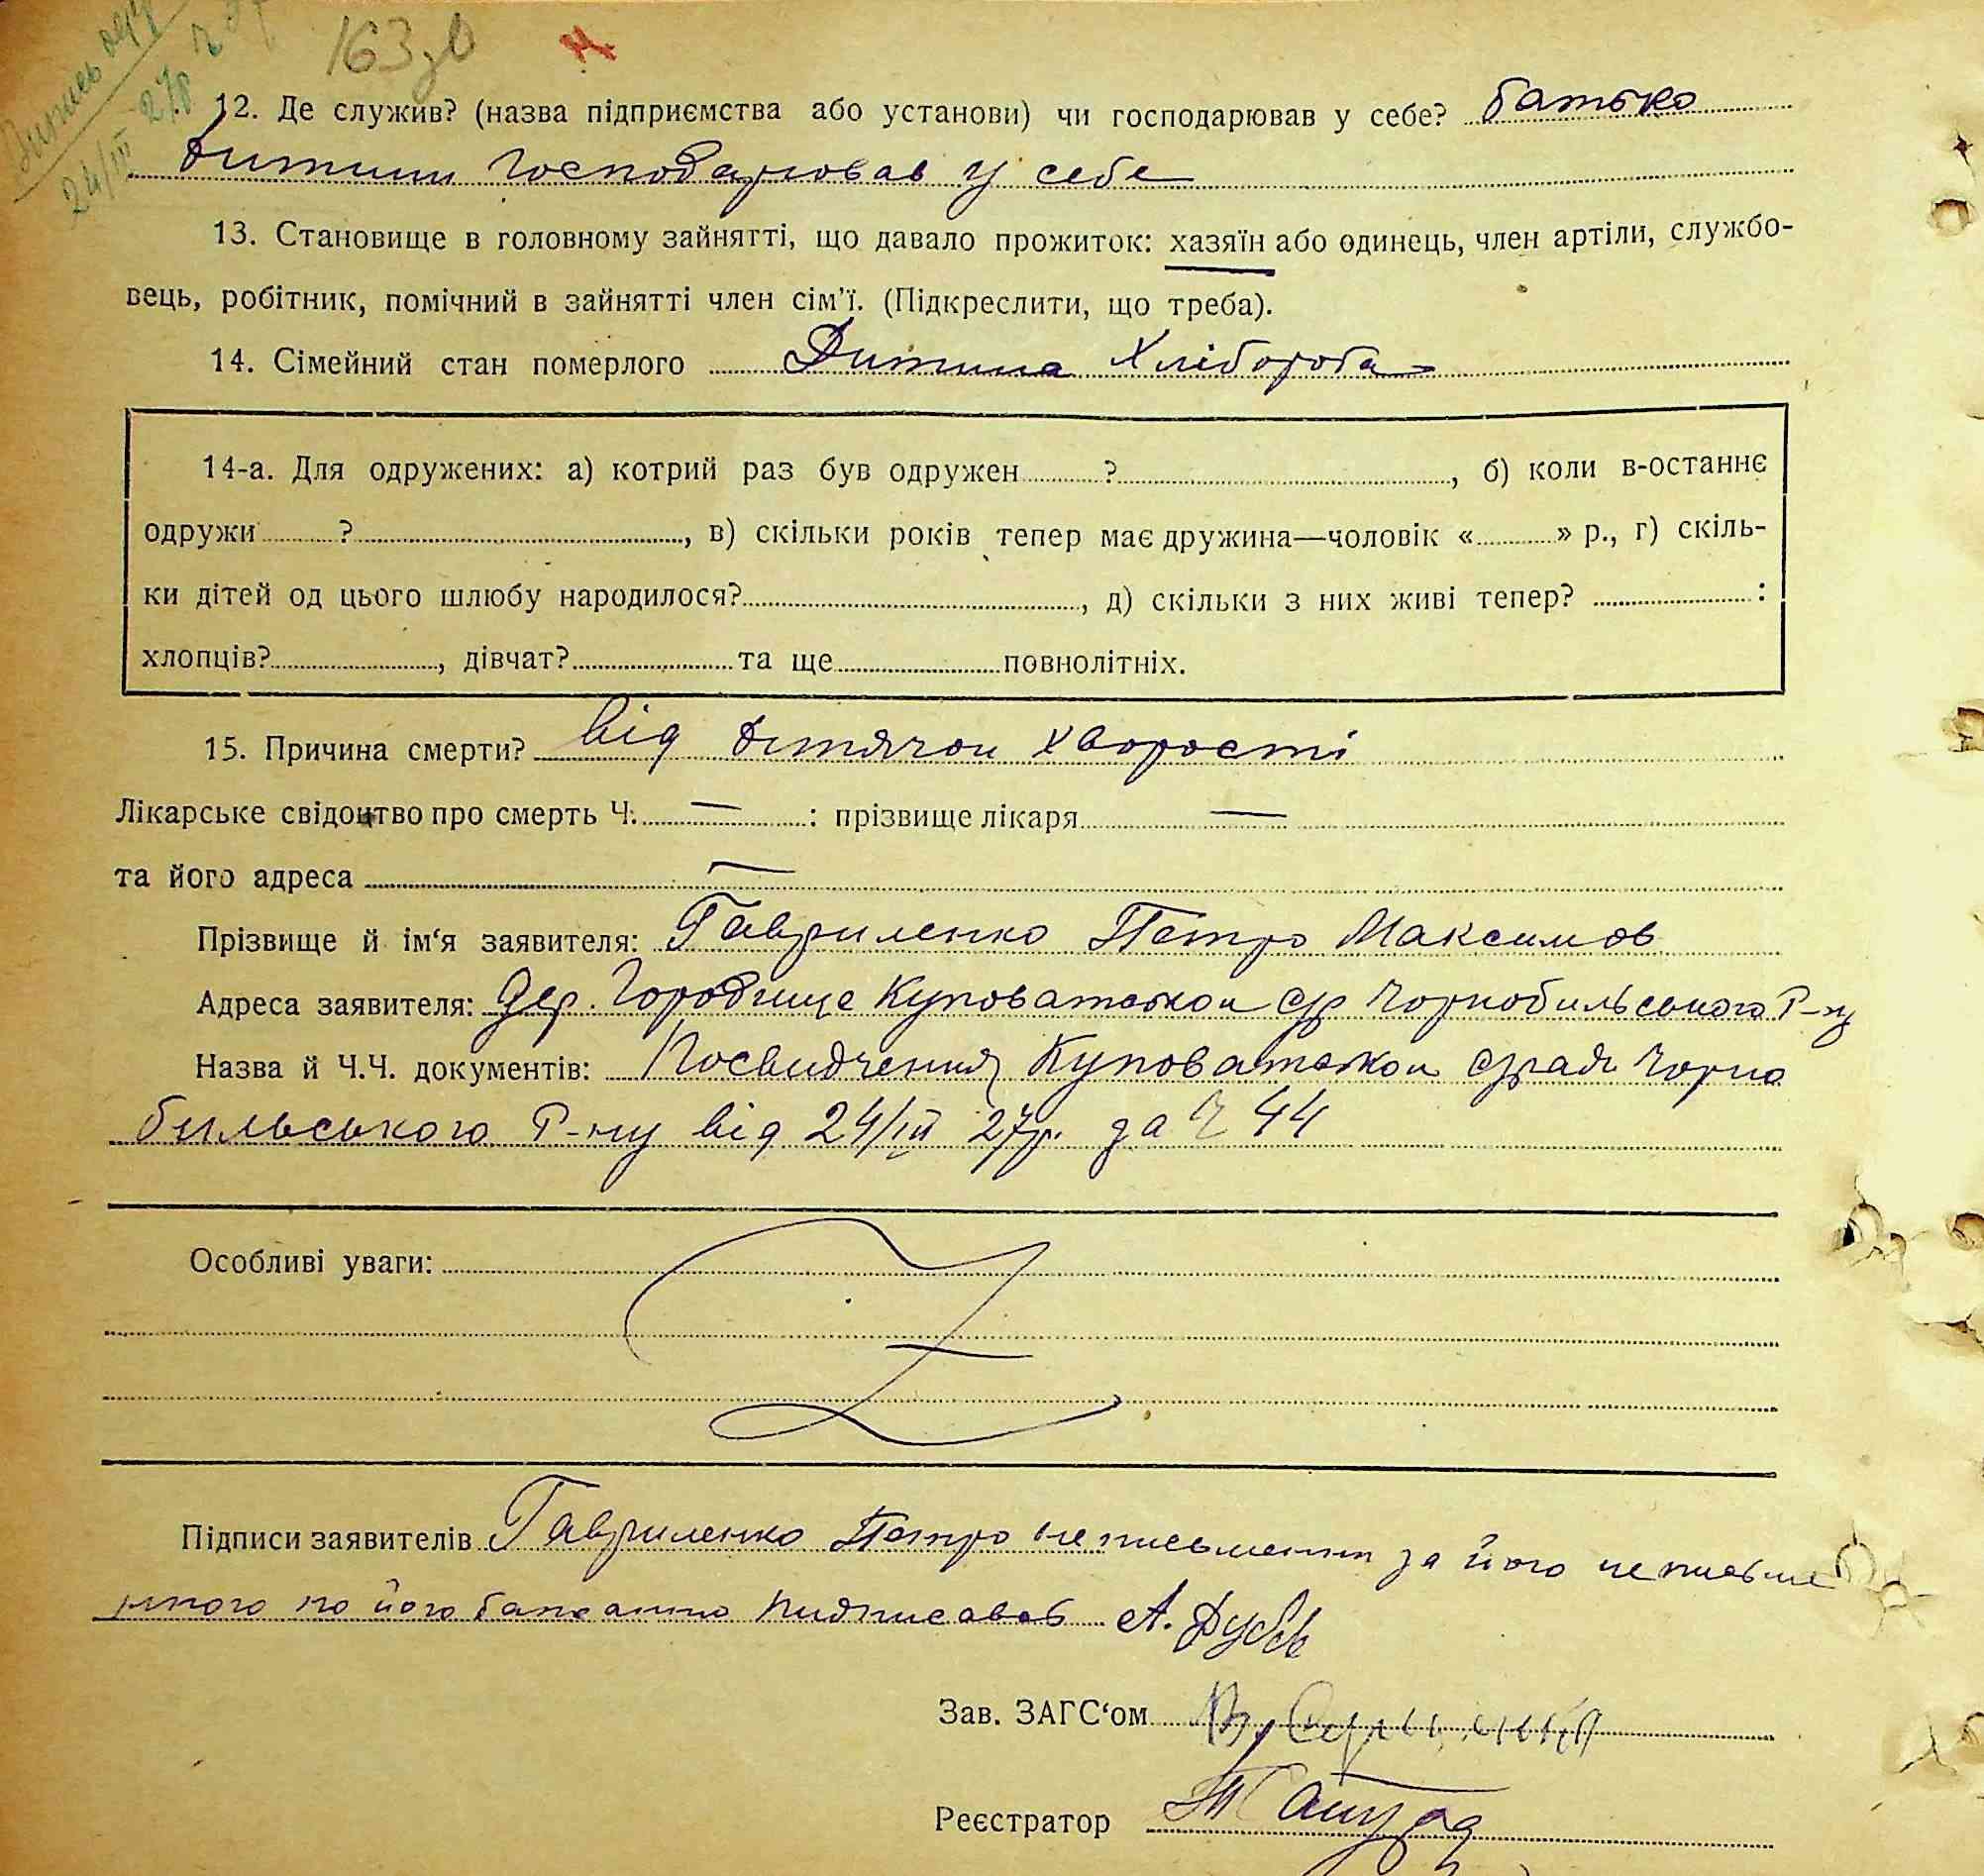 163 зв
Випись
24/III 27р
12. Де служив? (назва підприємства або установи) чи господарював у себе? батько
дитини господарював у себе
13. Становище в головному зайнятті, що давало прожиток: хазяїн або одинець, член артіли, службо-
вець, робітник, помічний в зайнятті член сім'ї. (Підкреслити, що треба).
14. Сімейний стан померлого Дитина Хлібороба
14-а. Для одружених: а) котрий раз був одружен ?, б) коли в-останнє
одружи ?, в) скільки років тепер має дружина—чоловік « » р., г) скіль-
ки дітей од цього шлюбу народилося?, д) скільки з них живі тепер? :
хлопців?, дівчат? та ще повнолітніх.
15. Причина смерти? від дитячои хворості
Лікарське свідоцтво про смерть Ч. — : прізвище лікаря —
та його адреса —
Прізвище й ім'я заявителя: Гавриленко Петро Максимов
Адреса заявителя: Дер. Городище Куповатськои с/р Чорнобильського Р-ну
Назва й Ч.Ч. документів: Посвидчення Куповатськои с/ради Чорно
бильського Р-ну від 24/III 27р. за Ч 44
Особливі уваги:
Підписи заявителів Гавриленко Петро неписьменни за його неписьме
нного по його бажанню пидписавав А. Дубв
Зав. ЗАГС'ом
Реєстратор